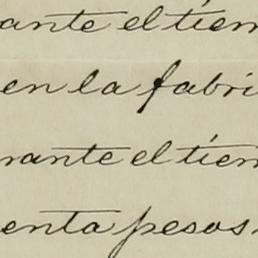 ante el tiem
en la fabri
rante el tiem
enta pesos